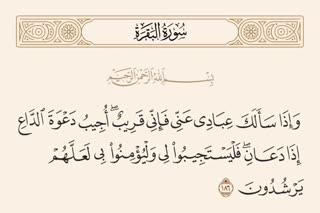 سُورَةُ البَقَرَةِ
بِسْمِ اللَّهِ الرَّحْمَٰنِ الرَّحِيمِ
وَإِذَا سَأَلَكَ عِبَادِى عَنِّى فَإِنِّى قَرِيبٌ ۖ أُجِيبُ دَعْوَةَ الدَّاعِ
إِذَا دَعَانِ ۖ فَلْيَسْتَجِيبُوا۟ لِى وَلْيُؤْمِنُوا۟ بِى لَعَلَّهُمْ
يَرْشُدُونَ ١٨٦